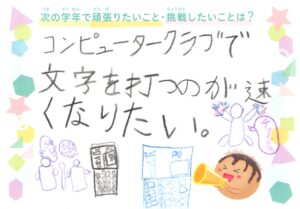 次の学年で頑張りたいこと・挑戦したいことは?
コンピュータークラブで
文字を打つのが速
くなりたい。